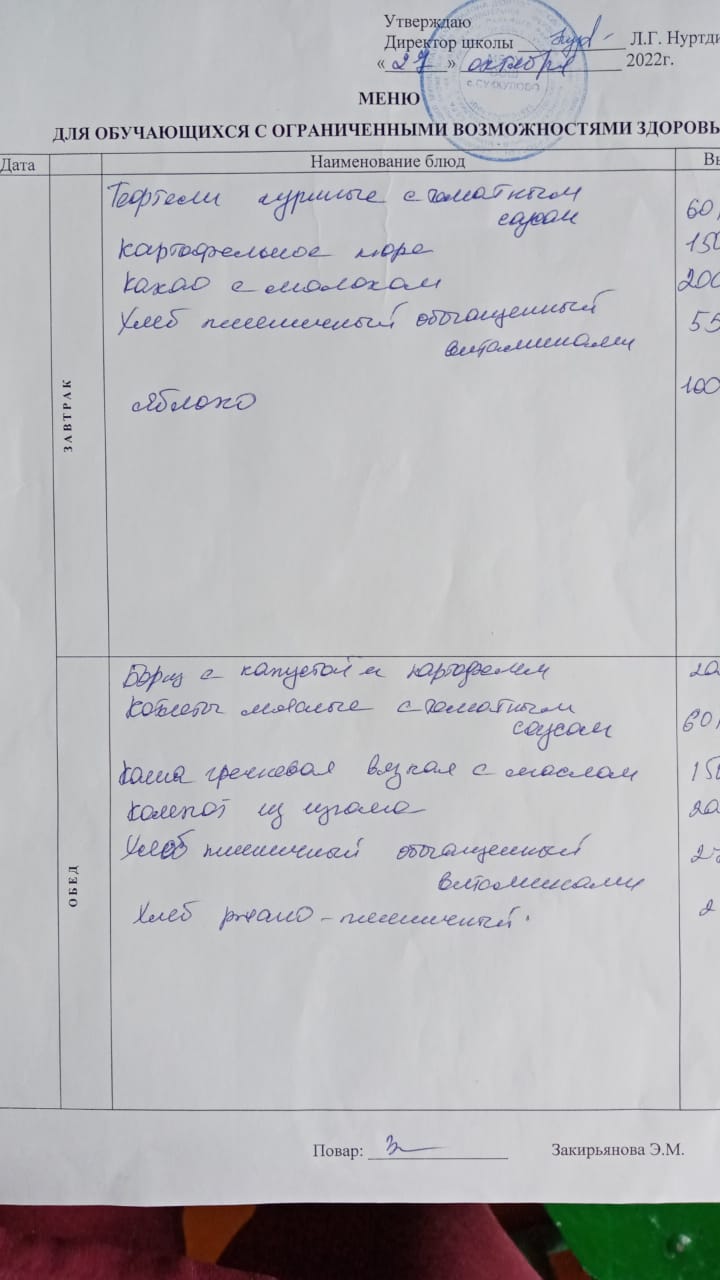 Утверждаю
Директор школы Л.Г. Нуртди
« 27 » октября 2022г.
с.СУККУЛОВО
МЕНЮ
ДЛЯ ОБУЧАЮЩИХСЯ С ОГРАНИЧЕННЫМИ ВОЗМОЖНОСТЯМИ ЗДОРОВЬ
Дата Наименование блюд Вы
ЗАВТРАК
Тефтели куриные с томатным
соусом 60
картофельное пюре 150
какао с молоком 200
Хлеб пшеничный обогащенный 55
витаминами
яблоко 100
ОБЕД
Борщ с капустой и картофелем 20
Котлеты мясные с томатным
соусом 60
Каша гречневая вязкая с маслом 150
Компот из изюма 20
Хлеб пшеничный обогащенный 2
витаминами
Хлеб ржано-пшеничный. 2
Повар: Закирьянова Э.М.